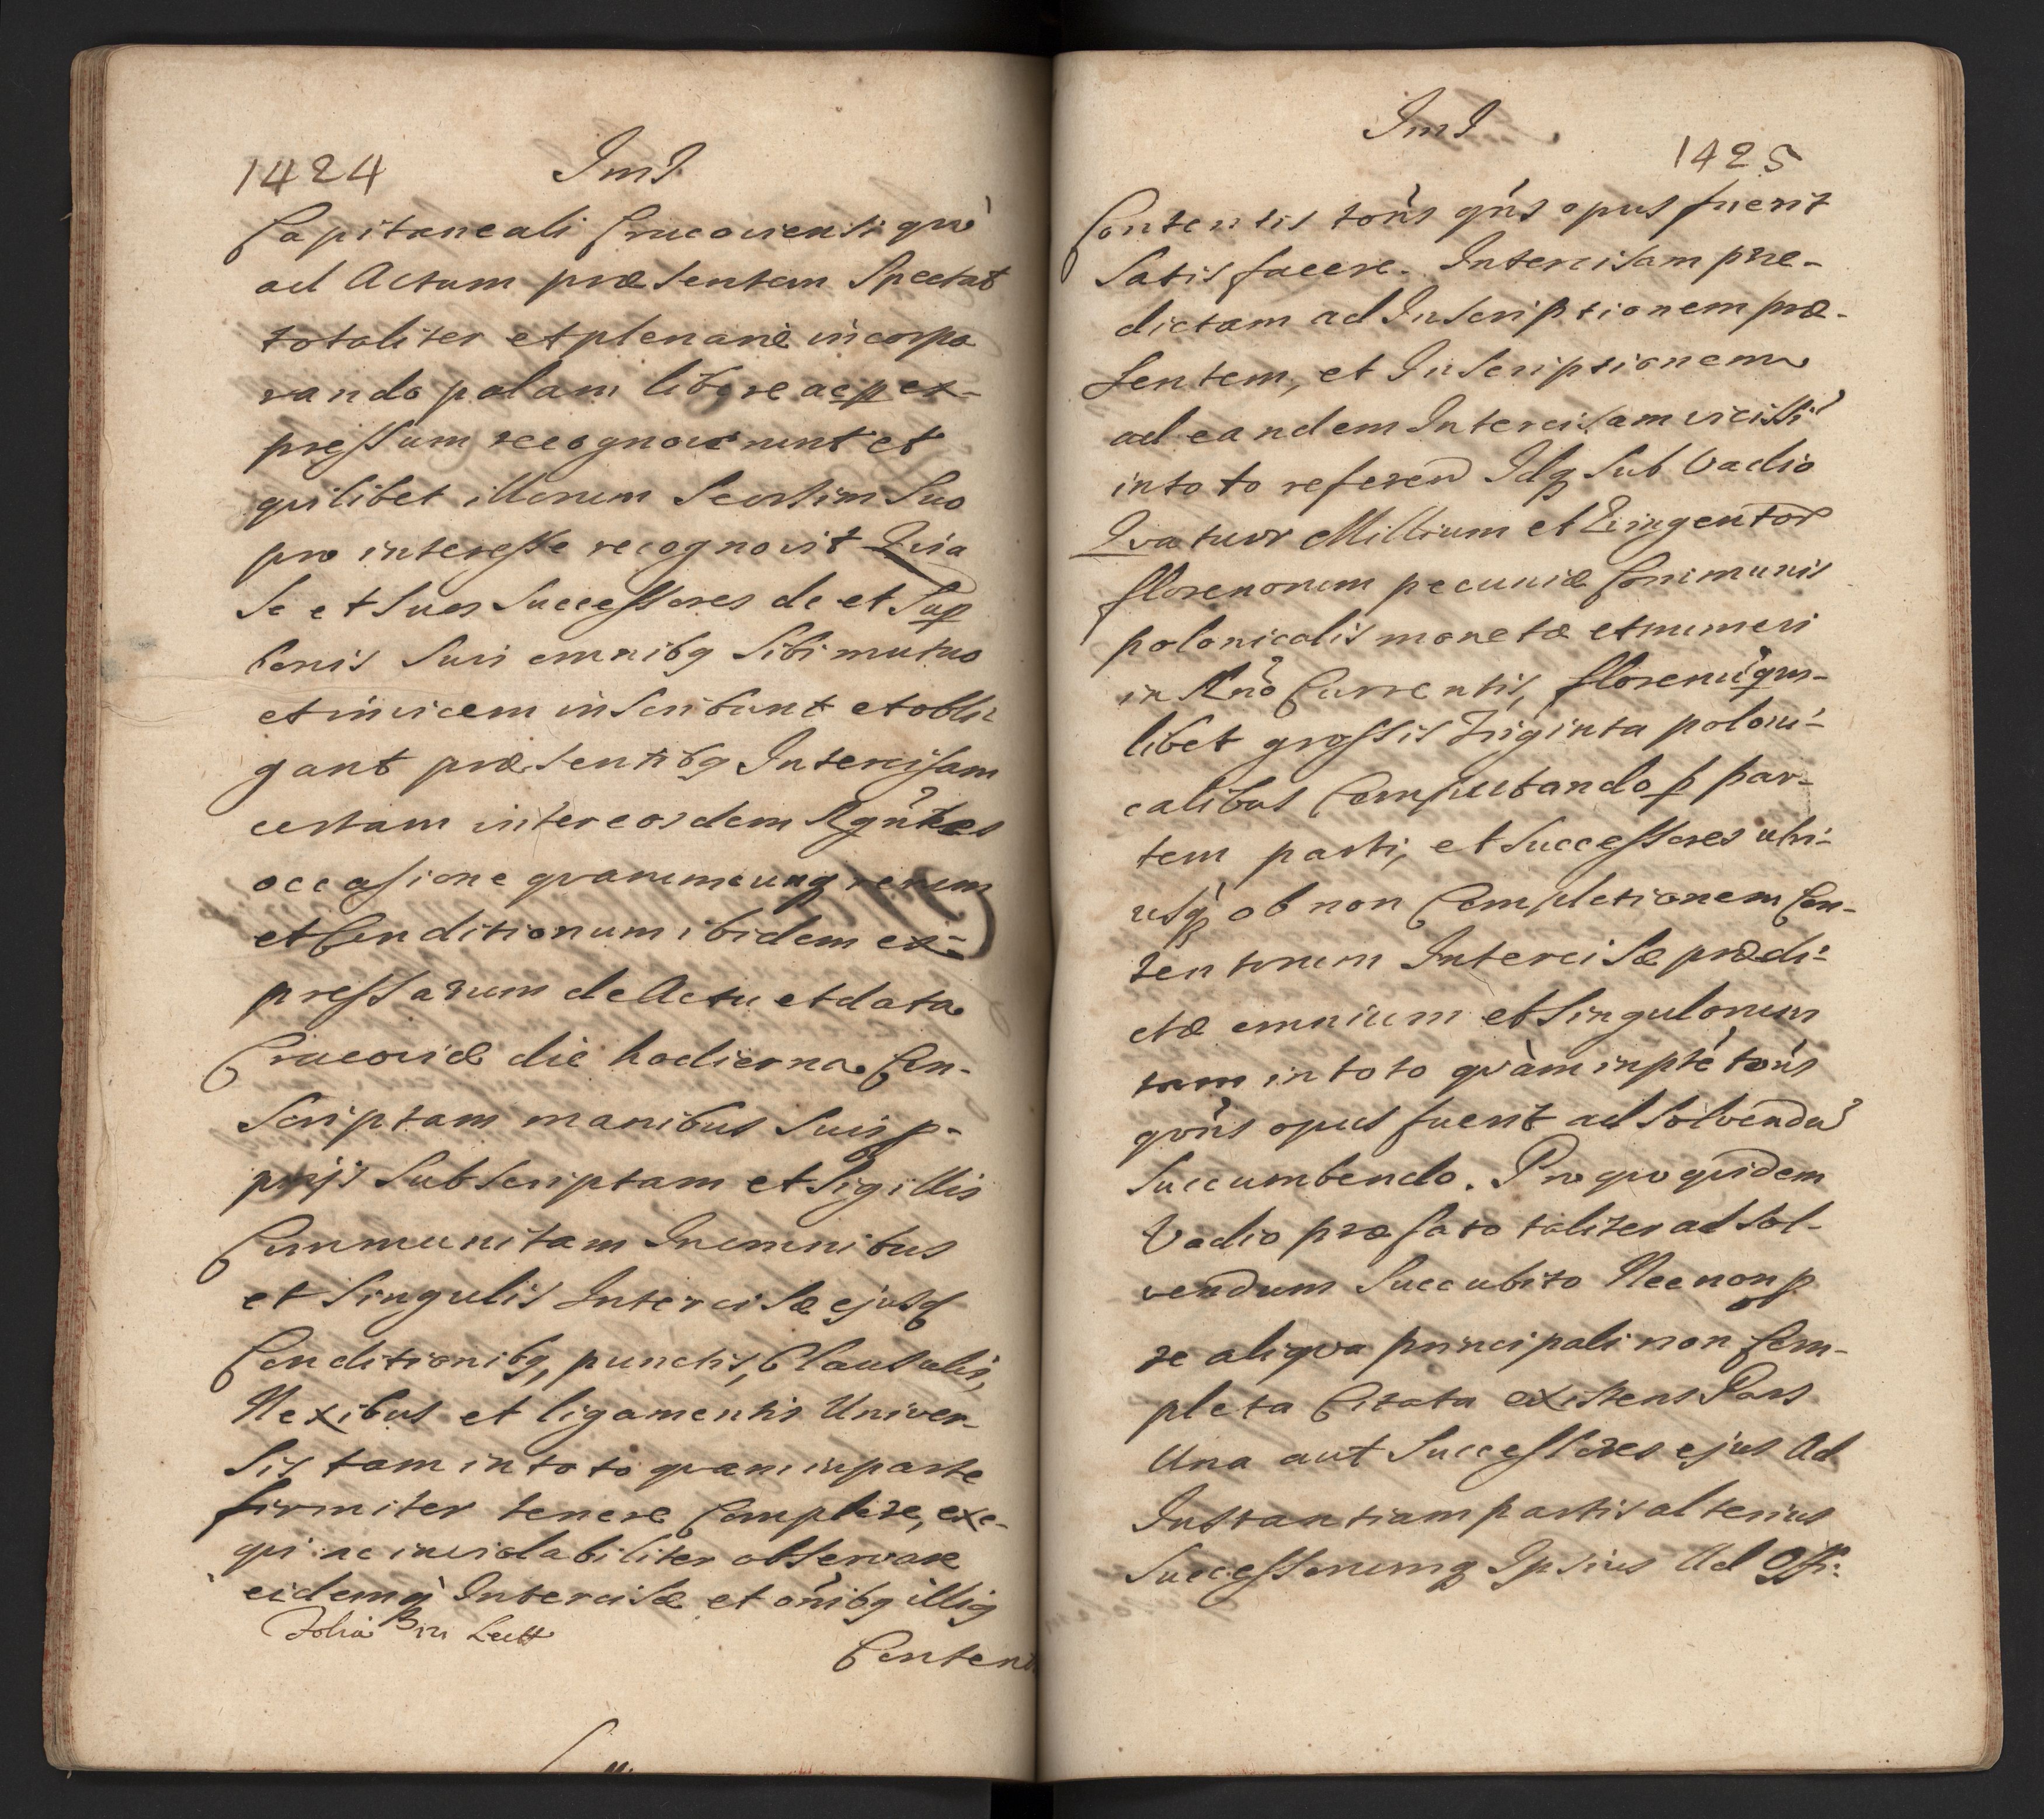 1424 ImJ
Capitaneali Cracoviensi quò
ad Actum præsentem Spectat
totaliter et plenariè incorpo
rando palam libere ac p ex-
pressum recognoverunt et
quilibet illorum Seorsim Suo
pro interesse recognovit Quia
Se et Suos Successores de et Sup
bonis Suis omnibq Sibi mutuo
et invicem inscribunt et obli
gant præsentibq Intercisam
certam inter eosdem Rgñtes
occasione quarumcunq rerum
et Conditionum ibidem ex-
pressarum de Actu et data
Cracoviæ die hodierna Con-
Scriptam manibus Suis p-
prijs Subscriptam et Sigillis
Communitam In omnibus
et Singulis Intercisæ ejusq
Conditionibq, punctis, Clausulis,
Nexibus et ligamentis Univer-
Sis tam in toto quam in parte
firmiter tenere Complere, exe-
qui ac inviolabiliter observare
eidemq Intercisæ et oñibq illiq
Conten
ImJ
1425
Contentis toñs qñs opus fuerit
Satisfacere. Intercisam præ-
dictam ad Inscriptionem præ-
Sentem, et Inscriptionem
ad eandem Intercisam vicissi
in toto referen Idq Sub Vadio
Quatuor Millium et Qingentor
florenorum pecuniæ Communis
polonicalis monetæ et numeri
in Rño Currentis, florenũ qm-
libet grossis Triginta poloni-
calibus Computando p par-
tem parti, et Successores utri-
usq ob non Completionem Con-
tentorum Intercisæ prædi-
ctæ omnium et Singulorum
tam in toto quàm in pte toñs
qvñs opus fuerit ad Solvendũ
Succumbendo. Pro quo quidem
Vadio præfato taliter ad Sol-
vendum Succubito Nec non p
re aliqua principali non Com-
pleta Citata existens Pars
Una aut Successores ejus Ad
Instantiam partis alterius
Successorumq Ipsius Ad Offi: